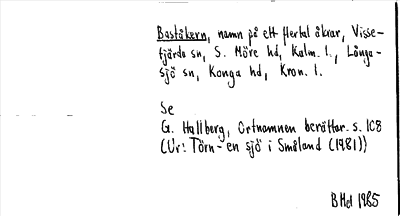 Baståkern, namn på ett flertal åkrar, Visse-
fjärda sn, S. Möre hd, Kalm. l., Långa-
sjö sn, Konga hd, Kron. l.
Se
G. Hallberg, Ortnamnen berättar. s. 108
(Ur: Törn - en sjö i Småland (1981))
BHel 1985